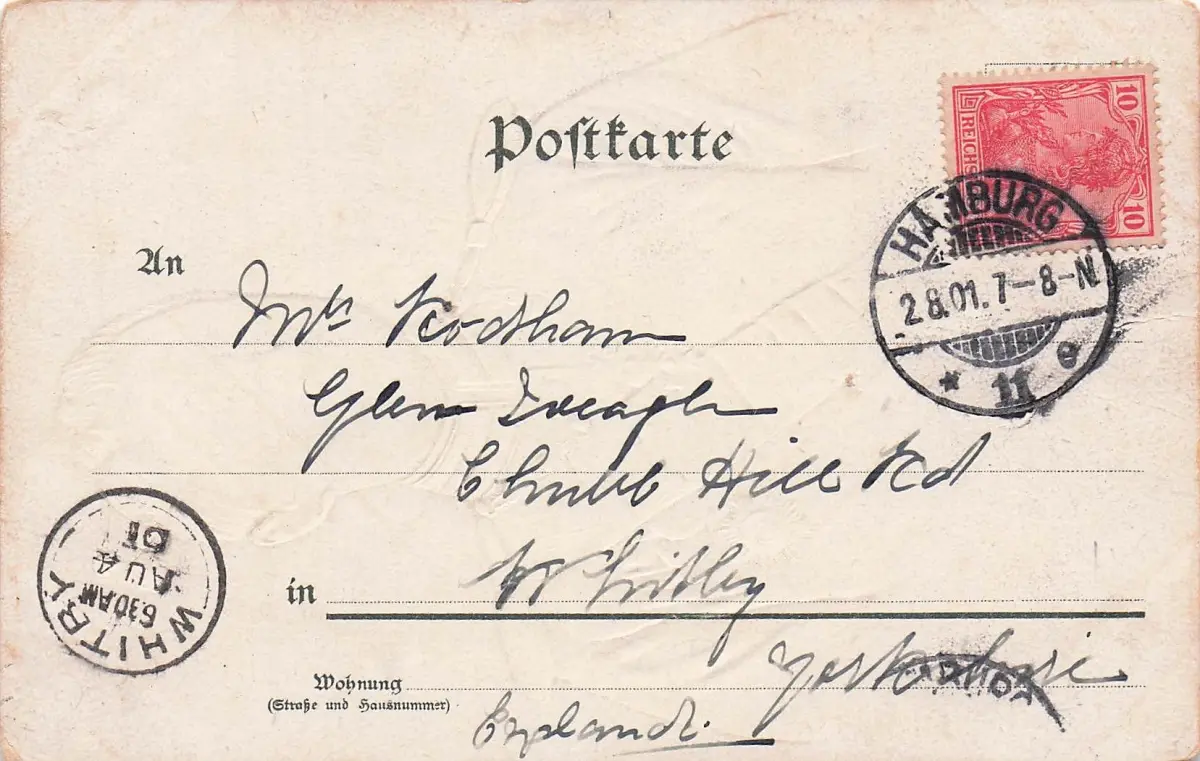 Postkarte
10
REICHSP
10
HAMBURG
2.8.01.7-8-N
* 11 e
An
Mrs
Glen
Chubb Hill Rd
WHITBY
630AM
AU 4
01
in Whitby
Yorkshire
Wohnung
(Straße und Hausnummer)
England.